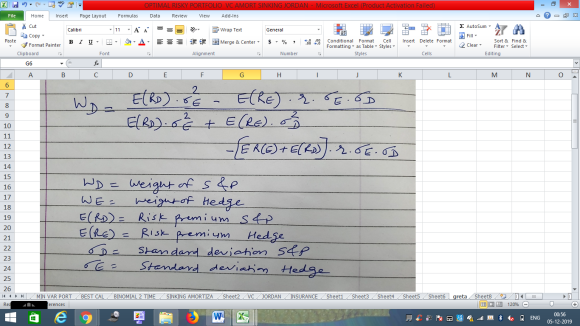 OPTIMAL RISKY PORTFOLIO VC AMORT SINKING JORDAN - Microsoft Excel (Product Activation Failed)
File Home Insert Page Layout Formulas Data Review View Add-Ins
Cut Calibri 11 Wrap Text General AutoSum
Copy Fill
Paste Format Painter Merge & Center Conditional Formatting Format as Table Cell Styles Insert Delete Format Clear Sort & Filter Find & Select
Clipboard Font Alignment Number Styles Cells Editing
G6 fx
A B C D E F G H I J K L M N O
6
7
8 W_D = E(R_D) · σ_E^2 - E(R_E) · r. σ_E · σ_D
9
10 E(R_D) · σ_E^2 + E(R_E) · σ_D^2
11
12 -[E R(E) + E(R_D)] · r. σ_E · σ_D
13
14
15 W_D = weight of S & P
16
17 W_E = weight of Hedge
18
19 E(R_D) = Risk premium S & P
20
21 E(R_E) = Risk premium Hedge
22 σ_D = Standard deviation S & P
23
24 σ_E = Standard deviation Hedge
25
26
MIN VAR PORT BEST CAL BINOMIAL 2 TIME SINKING AMORTIZA Sheet2 VC JORDAN INSURANCE Sheet1 Sheet3 Sheet4 Sheet5 Sheet6 greta Sheet8
120%
ENG 00:56
05-12-2019